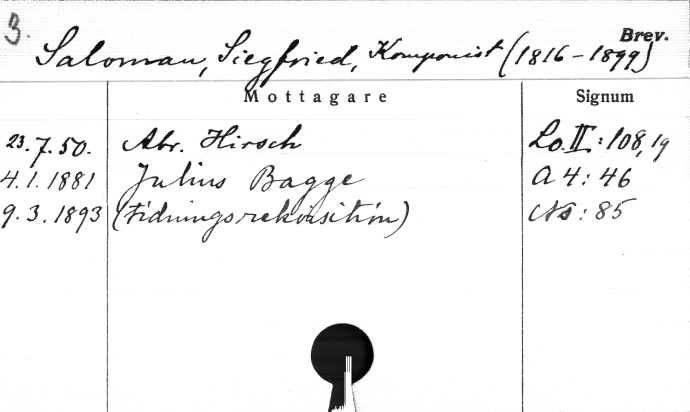 3.
Brev.
Saloman, Siegfried, Komponist (1816-1899)
Mottagare Signum
23.7.50. Abr. Hirsch Lo.II:108,19
4.1.1881 Julius Bagge A 4:46
9.3.1893 (Tidningsrekvisition) Ns:85